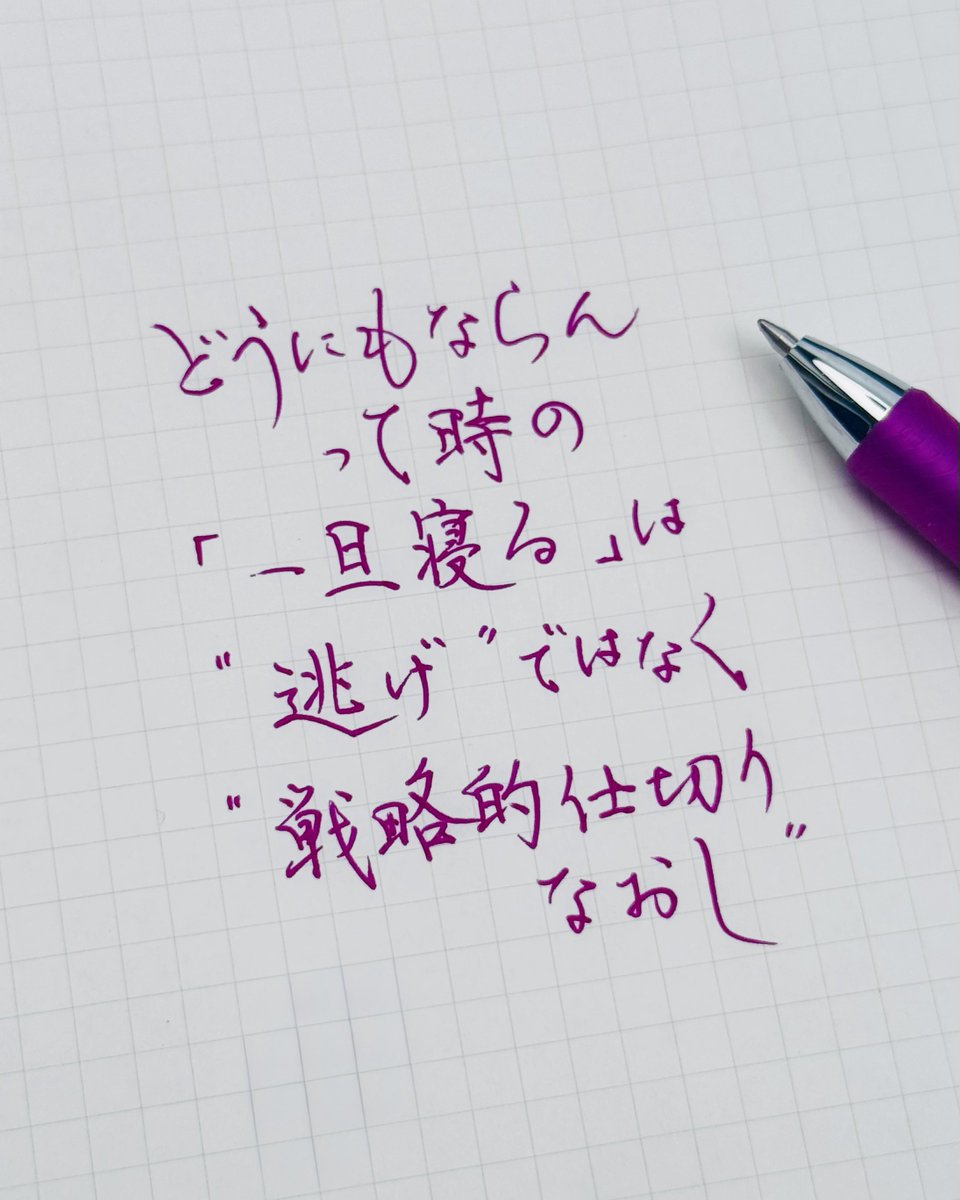 どうにもならん
って時の
「一旦寝る」は
"逃げ"ではなく
"戦略的仕切り
なおし"